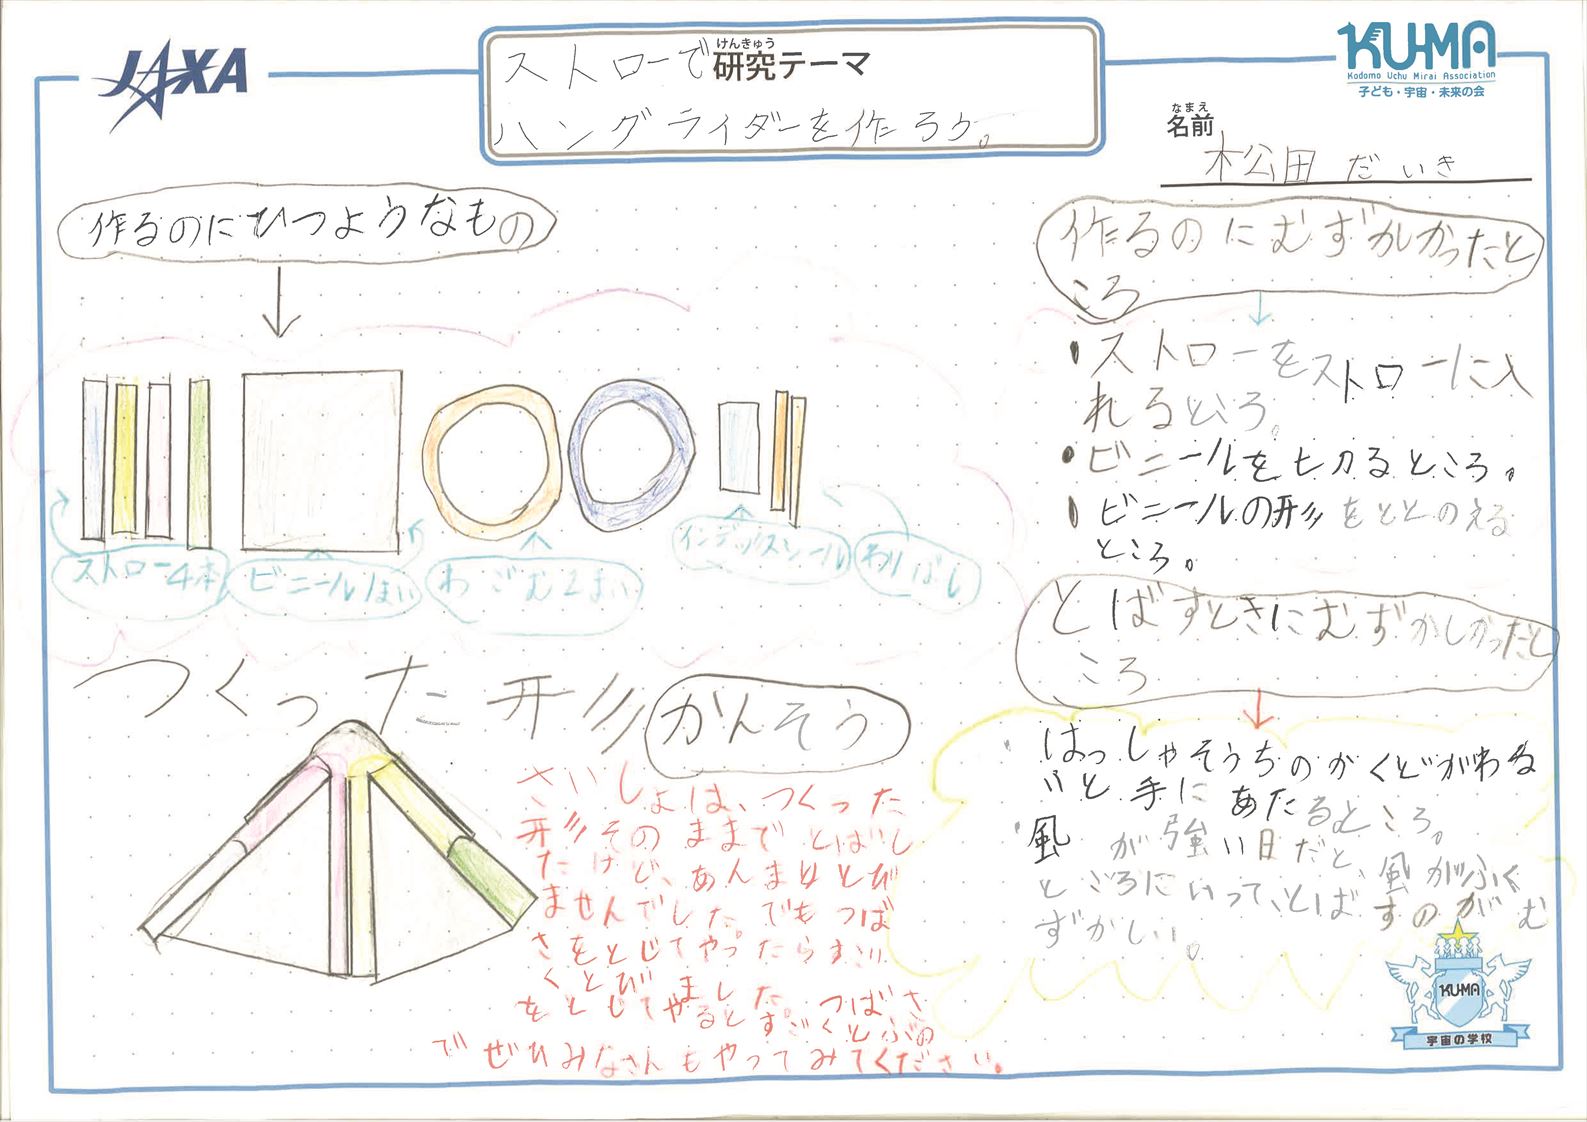 JAXA
けんきゅう
研究テーマ
ストローで
ハングライダーを作ろう。
KUMA
Kodomo Uchu Mirai Association
子ども・宇宙・未来の会
なまえ
名前
松田 だいき
作るのにひつようなもの
ストロー4本
ビニール1まい
わごむ2まい
インデックスシール
わりばし
つくった形
かんそう
さいしょは、つくった
形そのままでとばし
たけど、あんまりとび
ませんでした。でもつば
さをとじてやったらすごい
くとびました。つばさ
をとじてやるとすごくとぶの
でぜひみなさんもやってみてください。
作るのにむずかしかったと
ころ
・ストローをストローに入
れるところ。
・ビニールを切るところ。
・ビニールの形をととのえる
ところ。
とばすときにむずかしかったと
ころ
・はっしゃそうちのかくどがわる
いと手にあたるところ。
・風が強い日だと、風がふく
ところにいって、とばすのがむ
ずかしい。
KUMA
宇宙の学校